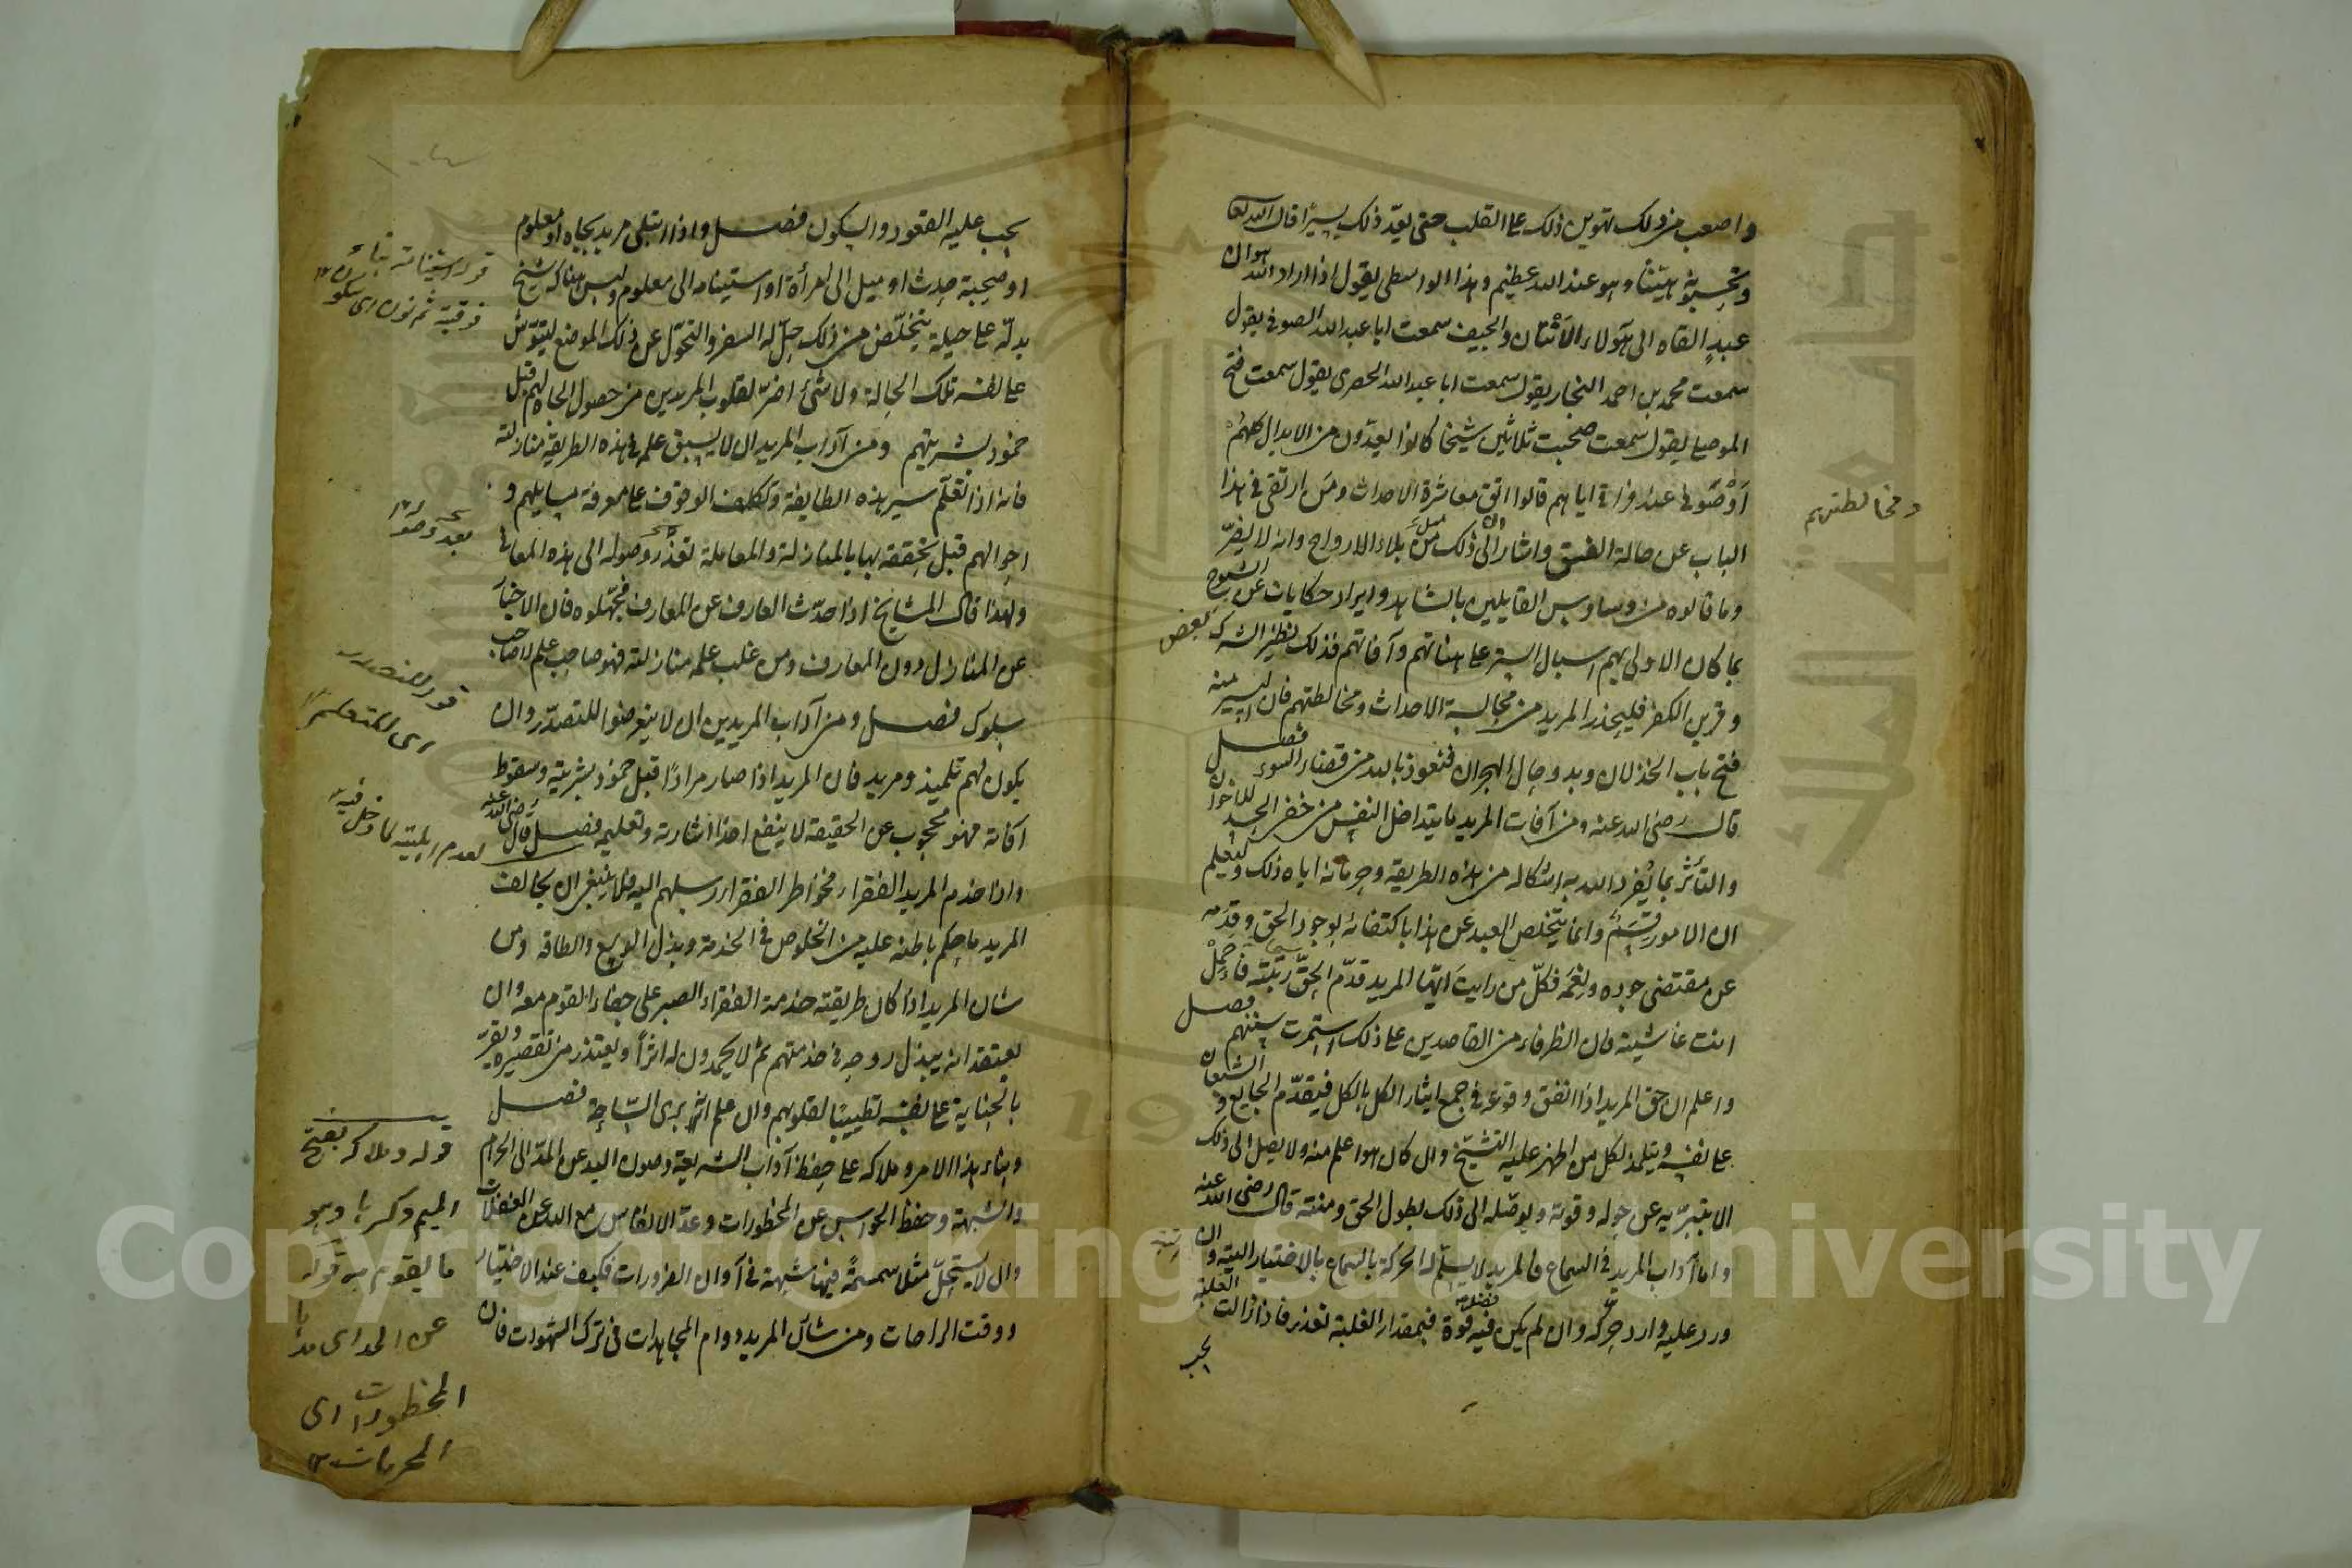 واصعب من ذلك تهوين ذلك على القلب حتى يعدّ ذلك يسيرًا قال الله تعا
وتحسبونه هيّنًا وهو عند الله عظيم وهذا الواسطى يقول اذا اراد الله هوان
عبدٍ القاه الى هؤلاء الانتان والجيف سمعت ابا عبد الله الصوفى يقول
سمعت محمد بن احمد النجار يقول سمعت ابا عبد الله الحصرى يقول سمعت فتح
الموصلى يقول سمعت صحبت ثلاثين شيخا كانوا يعدّون من الابدال كلهم
اَوْصَونى عند فراقى اياهم قالوا اتق معاشرة الاحداث ومن ارتقى فى هذا
ومخالطتهم
الباب عن حالة الفسق واشار الى ان ذلك من بلاء الارواح وانه لا يضرّ
وما قالوه من وساوس القايلين بالشاهد وايراد حكايات عن بعض الشيوخ
بما كان الاولى بهم اسبال الستر على هناتهم وآفاتهم فذلك نظير الشرك
وقرين الكفر فليحذر المريد من مجالسة الاحداث ومخالطتهم فان اليسير منه
فتح باب الخذلان وبدو حال الهجران فنعوذ بالله من قضاء السوء فصل
قال رضى الله عنه ومن آفات المريد ما يتداخل النفس من خفى الحسد للاخوان
والتأثر بما يُفرد الله به اشكاله من هذه الطريقة وحرمانه اياه ذلك وليعلم
ان الامور قِسَمٌ وانما يتخلص العبد عن هذا باكتفائه بوجود الحق وقدمه
عن مقتضى جوده ونِعَمَه فكلّ من رايتَ ايّها المريد قدّم الحقّ رتبته فاحمل
انت غاشيته فان الظرفاء من القاصدين على ذلك استمرت سنتهم فصل
واعلم ان حق المريد اذا اتفق وقوعه فى جمع ايثار الكل بالكل فيقدّم الجايع والشبعان
على نفسه ويتلمذ لكل من اظهر عليه التشيّخ وان كان هوا علم منه ولا يصل الى ذلك
الا بتبرّيه عن حوله وقوته ويوصّله الى ذلك بطول الحق ومنته قال رضى الله عنه
واما آداب المريد فى السماع فالمريد لا يسلّم له الحركة بالسماع بالاختيار البتة وان
ورد عليه وارد حركة وان لم يكن فيه فضل قوة فبمقدار الغلبة تعذر فاذا زالت الغلبة
يجب
يجب عليه القعود والسكون فصل واذا ابتلى مريد بجاه او معلوم
او صحبة حدث او ميل الى امرأة او استينامه الى معلوم وليس هناك شيخ
يدلّه على حيلة يتخلّص من ذلك حلّ له السفر والتحوّل عن ذلك الموضع ليشوّش
على نفسه تلك الحالة ولا شئ اضرّ لقلوب المريدين من حصول الجاه لهم قبل
خمود بشريتهم ومن آداب المريد ان لا يسبق علمه فى هذه الطريقة منازلته
فانه اذا تعلّم سير هذه الطايفة وتكلف الوقوف على معرفة مسايلهم و
احوالهم قبل تحققه بها بالمنازلة والمعاملة تعذر وصوله الى هذه المعانى
ولهذا قال المشايخ اذا حدّث العارف عن المعارف فجهّلوه فان الاخبار
عن المنازل دون المعارف ومن غلب علمه منازلته فهو صاحب علم لا صاحب
سلوك فصل ومن آداب المريدين ان لا يتعرضوا للتصدّر وان
يكون لهم تلميذ ومريد فان المريد اذا صار مرادًا قبل خمود بشريته وسقوط
آفاته فهو محجوب عن الحقيقة لا ينفع احدا اشارته وتعليمه فصل قال رضى الله عنه
واذا خدم المريد الفقراء فخواطر الفقراء رسلهم اليه فلا ينبغى ان يخالف
المريد ما حكم باطنه عليه من الخلوص فى الخدمة وبذل الوسع والطاقة ومن
شان المريد اذا كان طريقته خدمة الفقراء الصبر على جفاء القوم معه وان
يعتقد انه يبذل روحه فى خدمتهم ثم لا يحمدون له اثرًا ويعتذر من تقصيره ويقرّ
بالجناية على نفسه تطييبًا لقلوبهم وان علم انه برى الساحة فصل
وبناء هذا الامر وملاكه على حفظ آداب الشريعة وصون اليد عن المدّ الى الحرام
والشبهة وحفظ الحواس عن المحظورات وعدّ الانفاس مع الله عن الغفلات
وان لا يستحلّ مثلا سمسمةً فيها شبهة فى آوان الضرورات فكيف عند الاختيار
ووقت الراحات ومن شأن المريد دوام المجاهدات فى ترك الشهوات فان
قوله استينامته بتاء
فوقية ثم نون اى سكون
قوله للتصدر
اى للتعليم
لعدم اهليته لما دخل فيه
قوله وملاكه بفتح
الميم وكسرها وهو
ما يقوم به قوله
عن المد اى مدها
المحظورات اى
المحرمات ١٢